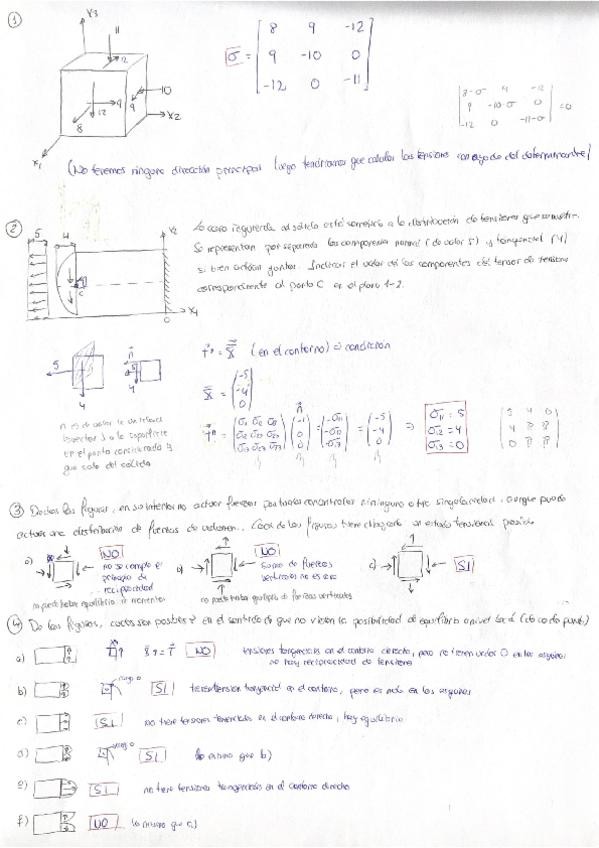 1
X3
11
12
10
9
9
X2
12
8
X1
σ =
8 9 -12
9 -10 0
-12 0 -11
8-σ 9 -12
9 -10-σ 0 =0
-12 0 -11-σ
(No tenemos ninguna dirección principal luego tendríamos que calcular las tensiones con ayuda del determinante)
2
5 4
X2
C
X1
O
La cara izquierda del sólido está sometida a la distribución de tensiones que se muestra.
Se representan por separado las componentes normal (de valor 5) y tangencial (4)
si bien actúan juntas. Indicar el valor de las componentes del tensor de tensiones
correspondiente al punto C en el plano 1-2.
5
4
n
5
4
n es de valor 1
a la superficie
en el punto considerado y
que sale del sólido
(en el contorno) = condición
X =
-5
-4
0
σ11 σ12 σ13
σ12 σ22 σ23
σ13 σ23 σ33
n
-1
0
0
=
-σ11
-σ12
-σ13
=
-5
-4
0
⇒
σ11 = 5
σ12 = 4
σ13 = 0
5 4 0
4 ? ?
0 ? ?
3 De las figuras, en su interior no actúan fuerzas puntuales ni ninguna otra singularidad, aunque puede
actuar una distribución de fuerzas de volumen. Cuál de las figuras tiene un estado tensional posible
a)
NO
no se cumple el
principio de
reciprocidad
no puede haber equilibrio de momentos
b)
NO
Suma de fuerzas
verticales no es cero
no puede haber equilibrio de fuerzas verticales
c)
SI
4 De las figuras, cuáles son posibles en el sentido de que no violen la posibilidad de equilibrio a nivel local (de cada punto)
a)
NO
tensiones tangenciales en el contorno derecho, pero no tienen valor 0 en las esquinas
no hay reciprocidad de tensiones
b)
SI
tiene tensión tangencial en el contorno, pero es nulo en las esquinas
c)
SI
no tiene tensiones tangenciales en el contorno derecho, hay equilibrio
d)
SI
lo mismo que b)
e)
SI
no tiene tensiones tangenciales en el contorno derecho
f)
NO
lo mismo que a)